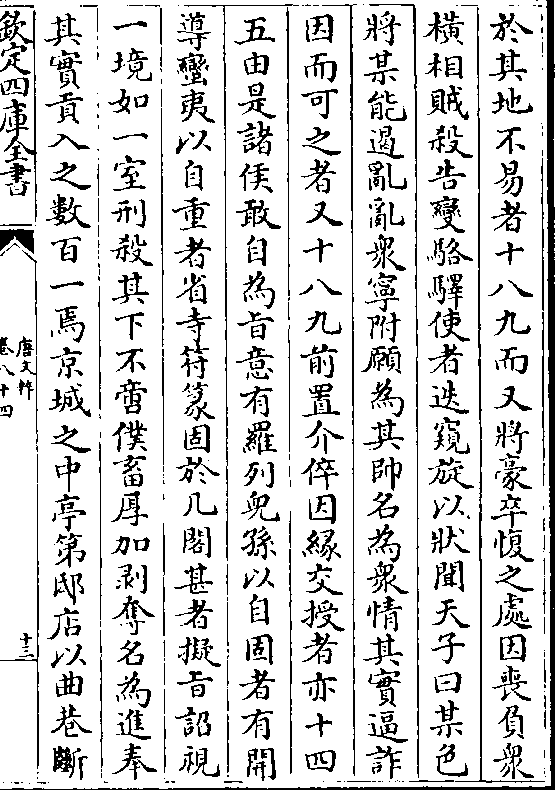 於其地不易者十八九而又將豪卒愎之處因喪負衆
橫相賊殺告變駱驛使者迭窺旋以狀聞天子曰某色
將某能遏亂亂衆寧附願為其帥名為衆情其實逼詐
因而可之者又十八九前置介倅因緣交授者亦十四
五由是諸侯敢自為旨意有羅列兒孫以自固者有開
導蠻夷以自重者省寺符篆固於几閣甚者擬旨詔視
一境如一室刑殺其下不啻僕畜厚加剥奪名為進奉
其實貢入之數百一焉京城之中亭第邸店以曲巷斷
欽定四庫全書
唐文粹
卷八十四
十三